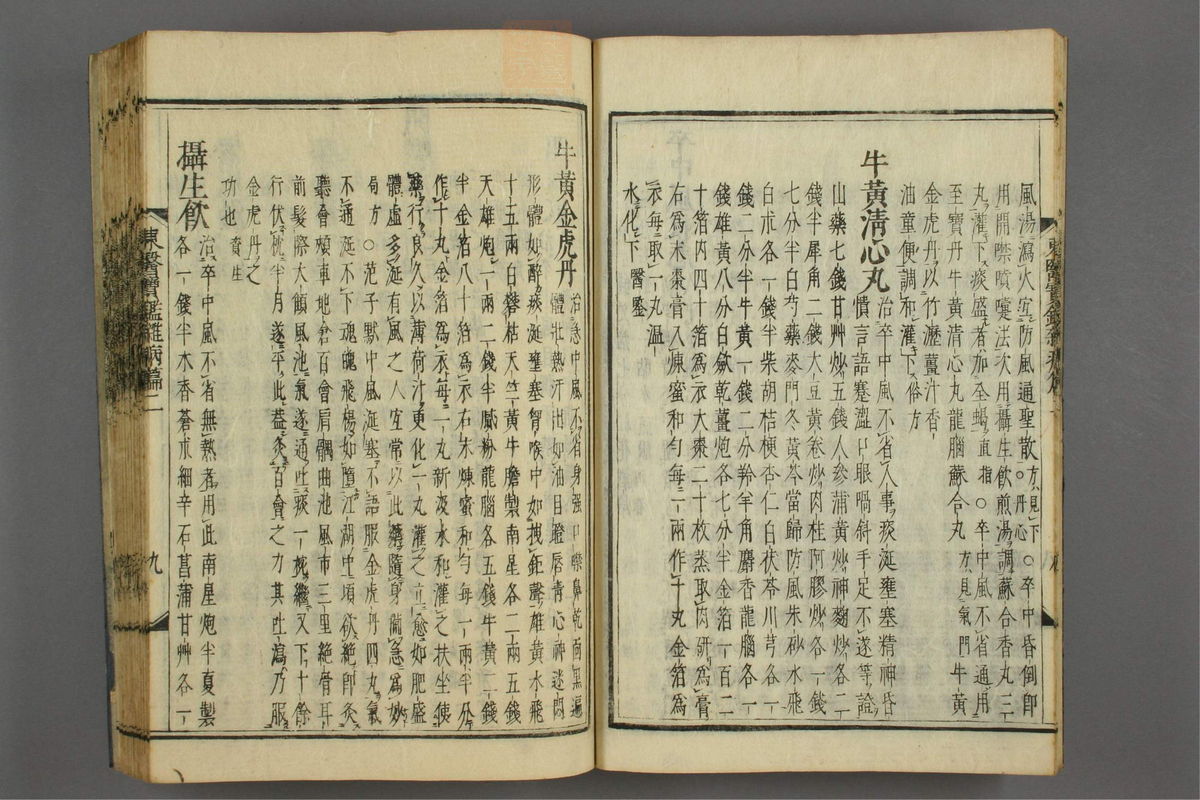 風湯瀉火宜防風通聖散方見下○丹心○卒中昏倒卽
用開噤法噴嚏法次用攝生飮煎湯調蘇合香丸三
丸灌下痰盛者加全蝎直指○卒中風不省通用
至寶丹牛黃淸心丸龍腦蘇合丸方見氣門牛黃
金虎丹以竹瀝薑汁香
油童便調和灌下俗方
牛黃淸心丸治卒中風不省人事痰涎壅塞精神昏
憒言語蹇澁口眼喎斜手足不遂等證
山藥七錢甘艸炒五錢人參蒲黃炒神麴炒各二
錢半犀角二錢大豆黃卷炒肉桂阿膠炒各一錢
七分半白芍藥麥門冬黃芩當歸防風朱砂水飛
白朮各一錢半柴胡桔梗杏仁白茯苓川芎各一
錢二分半牛黃一錢二分羚羊角麝香龍腦各一
錢雄黃八分白斂乾薑炮各七分半金箔一百二
十箔內四十箔爲衣大棗二十枚蒸取肉硏爲膏
右爲末棗膏入煉蜜和勻每一兩作十丸金箔爲
衣每取一丸溫
水化下醫鑒
牛黃金虎丹治急中風不省身強口噤鼻乾面黑遍
體壯熱汗出如油目瞪脣靑心神迷悶
形體如醉痰涎壅塞胷喉中如拽鉅聲雄黃水飛
十五兩白礬枯天竺黃牛膽製南星各二兩五錢
天雄炮一兩二錢半膩粉龍腦各五錢牛黃二錢
半金箔八十箔爲衣右末煉蜜和勻每一兩半分
作十丸金箔爲衣每一丸新汲水和灌之扶坐使
藥行良久以薄荷汁更化一丸灌之立愈如肥盛
體虛多涎有風之人宜常以此藥隨身隄急爲妙
局方○范子默中風涎塞不語服金虎丹四丸氣
不通涎不下魂魄飛楊如墮江湖中頃欲絶卽灸
聽會頰車地倉百會肩髃曲池風市三里絶骨耳
前髮際大顀風池氣遂通吐痰一㭱繼又下十餘
行伏枕半月遂平此蓋灸百會之力其吐瀉乃服
金虎丹之
功也資生
攝生飮治卒中風不省無熱者用此南星炮半夏製
各一錢半木香蒼朮細辛石菖蒲甘艸各一
東醫寶鑑雜病編二
九